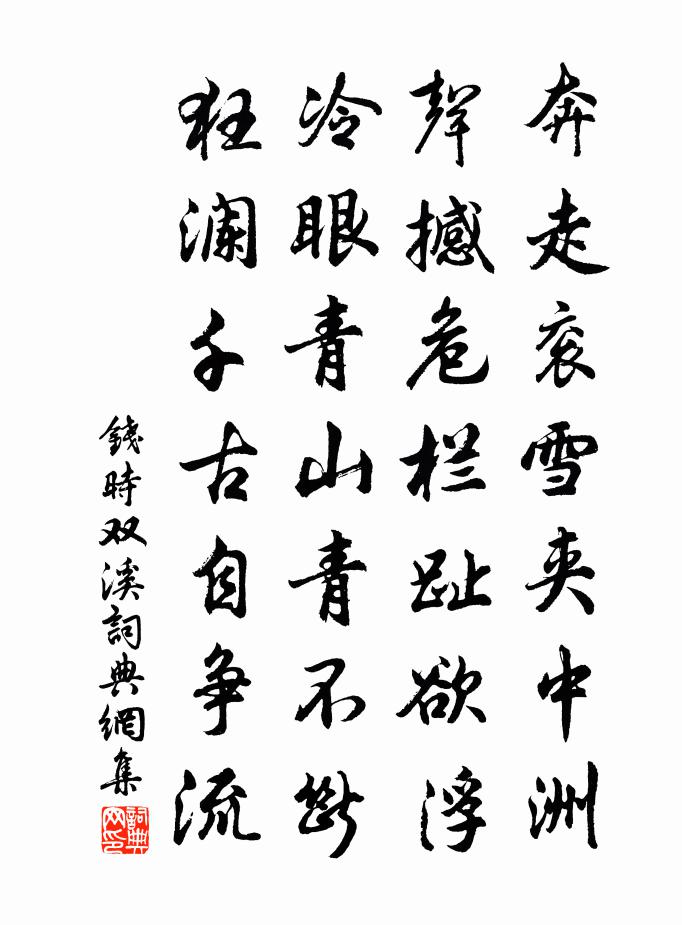 奔走衮雪夹中洲
聲撼危栏趾欲浮
冷眼青山青不斷
狂澜千古自争流
錢時双溪詞典網集
詞典网印